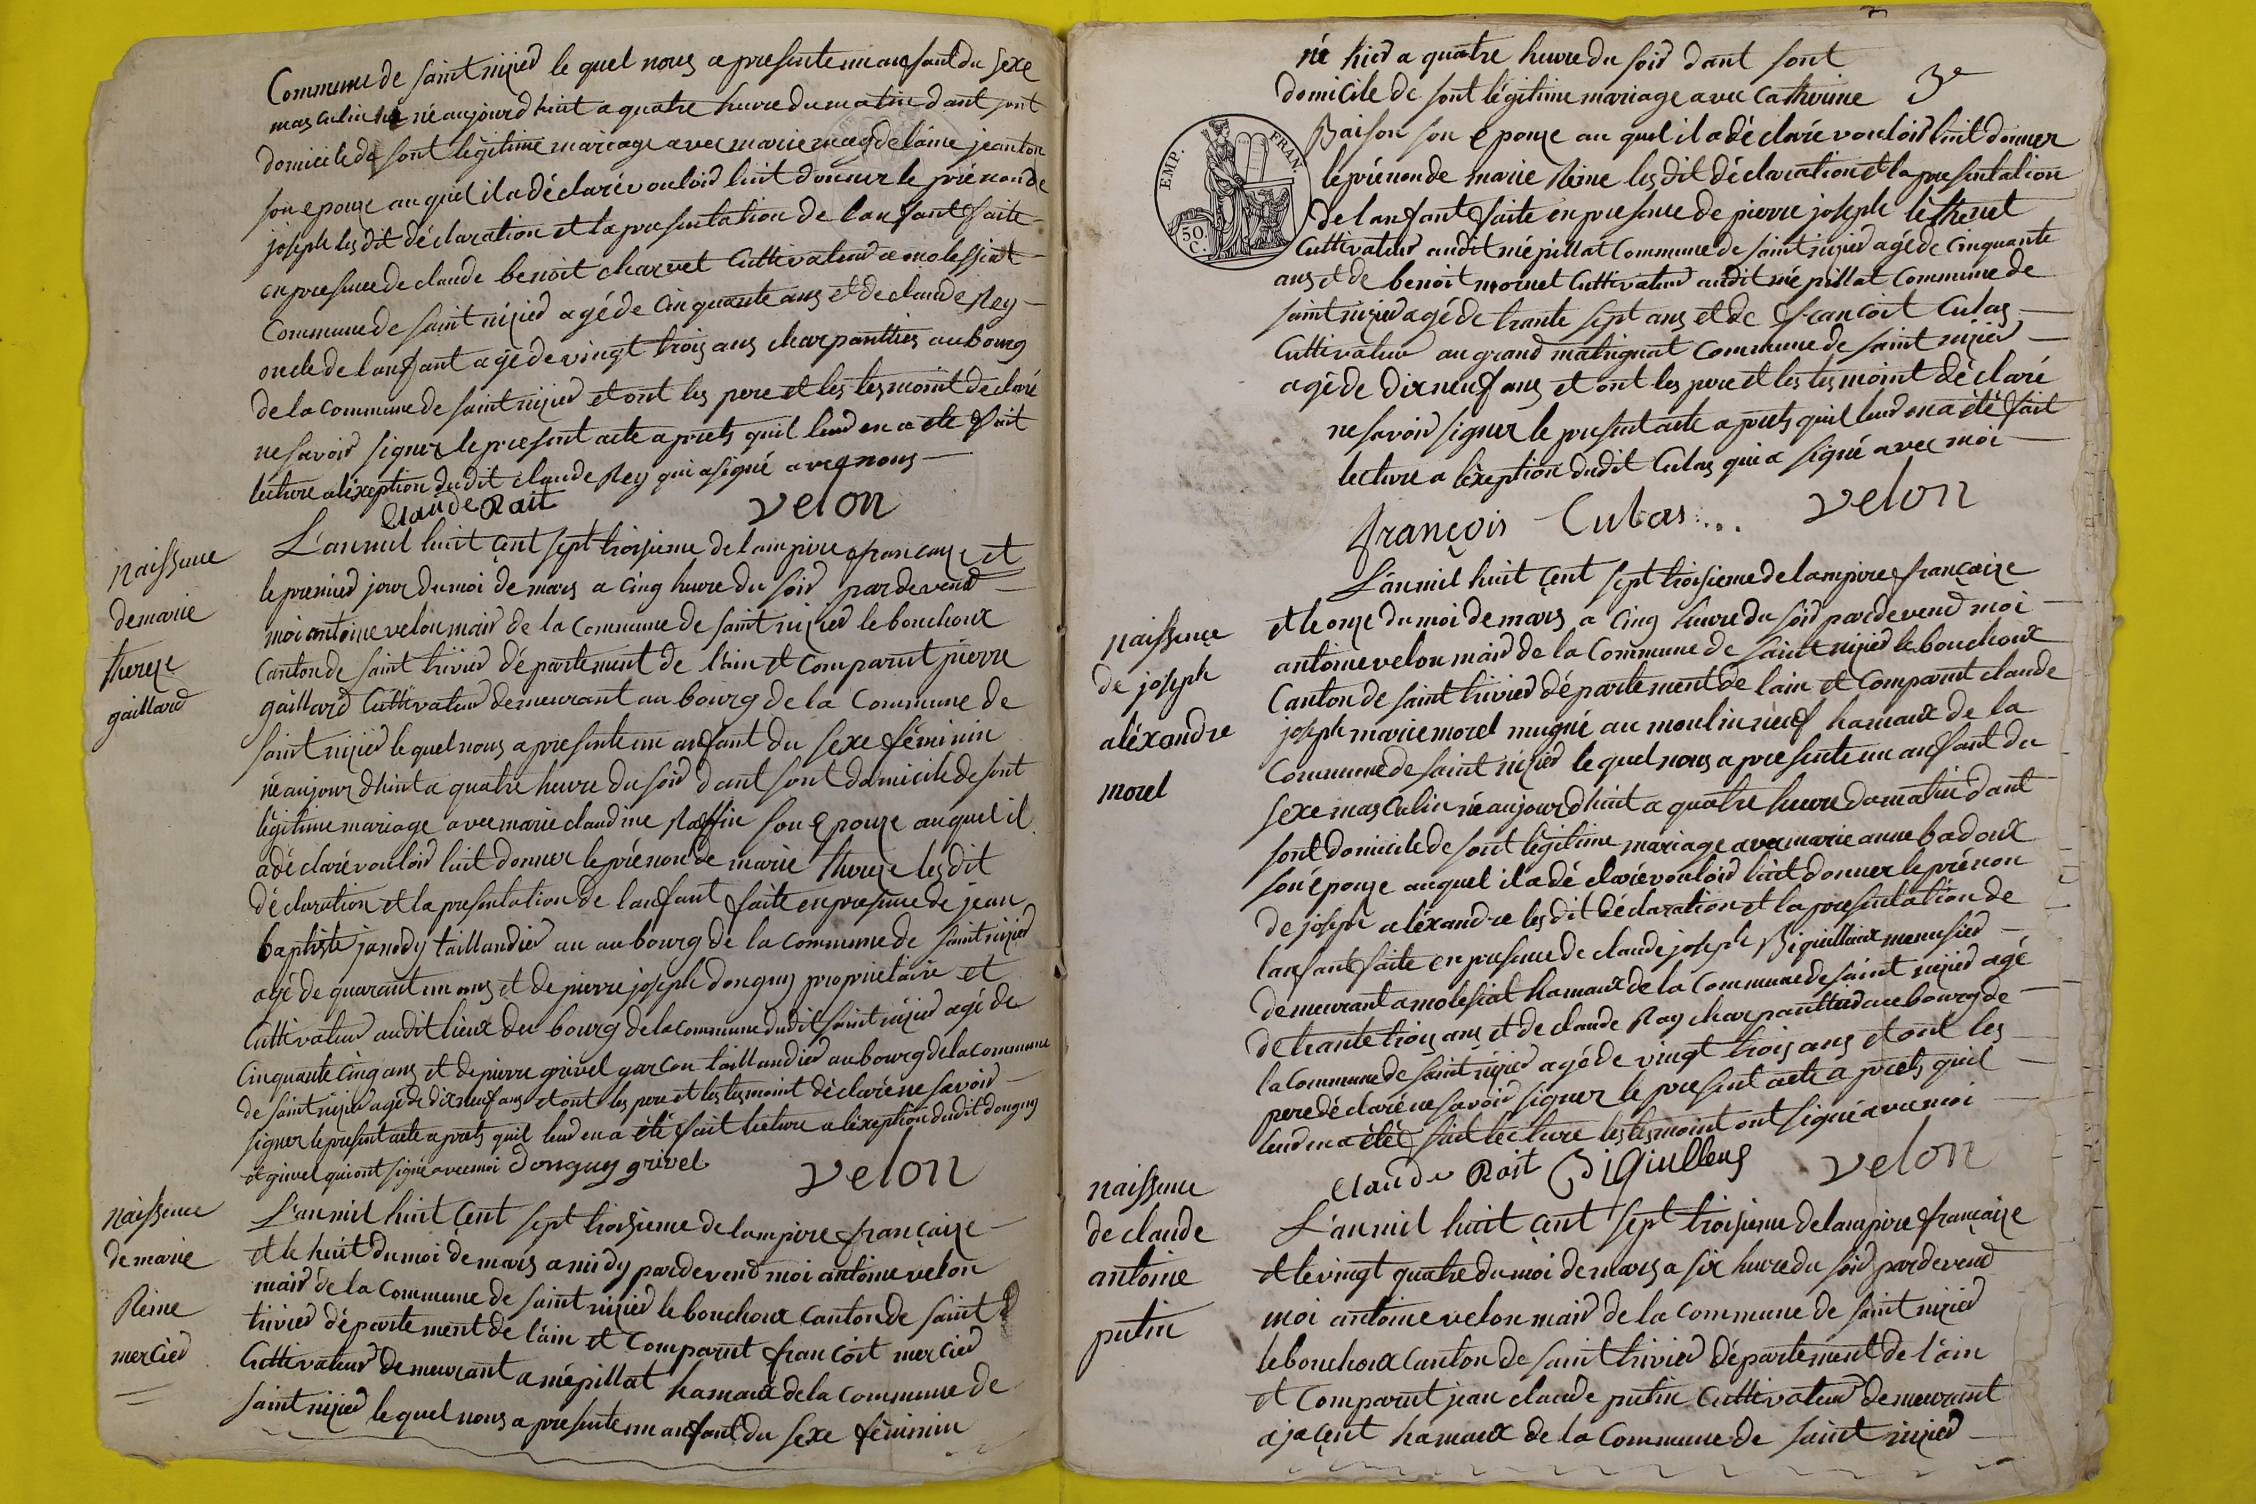 Commune de saint nizier le quel nous a presenté un anfant du sexe
masculin né aujourd huit a quatre heure du matin dant sont
domicile de sont légitime mariage avec marie magdelaine jeanton
son epouze au quel il a déclaré vouloir luit donner le prénon de
joseph les dit déclaration et la presentation de lanfant faite
en presence de claude benoit charvet Cultivateur a molessiat
Commune de saint nizier agé de cinquante ans et de claude Rey
oncle de lanfant agé de vingt trois ans charpanttier au bourg
de la commune de saint nizier et ont les pere et les tesmoint déclaré
ne savoir signer le present acte aprets quil leur en a été fait
lecture a léxeption dudit claude Rey qui a signé avec nous
claude Rait velon
naissence
de marie
thereze
gaillard
L'an mil huit çent sept troisieme de lampire françaize et
le premier jour du moi de mars a cinq heure du soir par devend
moi antoine velon mair de la Commune de saint nizier le bouchoux
Canton de saint trivier département de l'ain et Comparut pierre
gaillard Cultivateur demeurant au bourg de la Commune de
saint nizier le quel nous a presenté un anfant du sexe féminin
né aujourd'huit a quatre heure du soir dant sont domicile de sont
légitime mariage avec marie claudine Raffin son epouze au quel il
a déclaré vouloir luit donner le prénon de marie thereze les dit
déclaration et la presentation de lanfant faite en presence de jean
baptiste janody taillandier au au bourg de la commune de saint nizier
agé de quarant un ans et de pierre joseph donguy propriétaire et
Cultivateur audit lieux du bourg de la commune dudit saint nizier agé de
Cinquante cinq ans et de pierre grivel garcon taillandier au bourg de la commune
de saint nizier agé de dix neuf ans et ont les pere et les tesmoint déclaré ne savoir
signer le present acte aprets quil leur en a été fait lecture a léxeption dudit donguy
et grivel qui ont signé avec moi donguy grivel velon
naissence
de marie
Reine
mercier
L'an mil huit çent sept troisieme de lampire françaize
et le huit du moi de mars a midy par devend moi antoine velon
mair de la Commune de saint nizier le bouchoux Canton de saint
trivier département de l'ain et Comparut francoit mercier
Cultivateur demeurant a mépillat hamaux de la Commune de
saint nizier le quel nous a presenté un anfant du sexe féminin
3e
né hier a quatre heure du soir dant sont
domicile de sont légitime mariage avec Catherine
Baison son epouze au quel il a déclaré vouloir luit donner
le prénon de marie Reine les dit déclaration et la presentation
de lanfant faite en presence de pierre joseph léthenet
Cultivateur audit mépillat Commune de saint nizier agé de cinquante
ans et de benoit mornet Cultivateur audit mépillat Commune de
saint nizier agé de trante sept ans et de francoit Culas
Cultivateur au grand matignat Commune de saint nizier
agé de dix neuf ans et ont les pere et les tesmoint déclaré
ne savoir signer le present acte aprets quil leur en a été fait
lecture a léxeption dudit Culas qui a signé avec moi
françois Culas velon
EMP. FRAN.
50.
C.
naissence
de joseph
aléxandre
morel
L'an mil huit çent sept troisieme de lampire françaize
et le onze du moi de mars a cinq heure du soir par devend moi
antoine velon mair de la Commune de saint nizier le bouchoux
Canton de saint trivier département de lain et Comparut claude
joseph marie morel mugné au moulin neuf hamaux de la
Commune de saint nizier le quel nous a presenté un anfant du
sexe masculin né aujourd huit a quatre heure du matin dant
sont domicile de sont légitime mariage avec marie anne badoux
son épouze au quel il a déclaré vouloir luit donner le prénon
de joseph aléxandre les dit déclaration et la presentation de
lanfant faite en presence de claude joseph Biguilliaux menusier
demeurant a molesiat hamaux de la Commune de saint nizier agé
de trante trois ans et de claude Ray charpanttier au bourg de
la Commune de saint nizier agé de vingt trois ans et ont les
pere déclaré ne savoir signer le present acte aprets quil
leur en a étée fait lecture les tesmoint ont signé avec moi
claude Rait Biguilleus velon
naissence
de claude
antoine
putin
L'an mil huit çent sept troisieme de lampire françaize
et le vingt quatre du moi de mars a six heure du soir par devend
moi antoine velon mair de la commune de saint nizier
le bouchoux Canton de saint trivier département de l'ain
et Comparut jean claude putin Cultivateur demeurant
a jaçent hamaux de la Commune de saint nizier